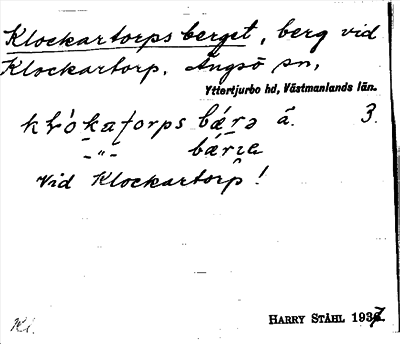 Klockartorpsberget, berg vid
Klockartorp, Ängsö sn,
Yttertjurbo hd, Västmanlands län.
klókatorps bárə á. 3.
-"- bárɩɐ
Vid Klockartorp!
HARRY STÅHL 1937.
Kl.